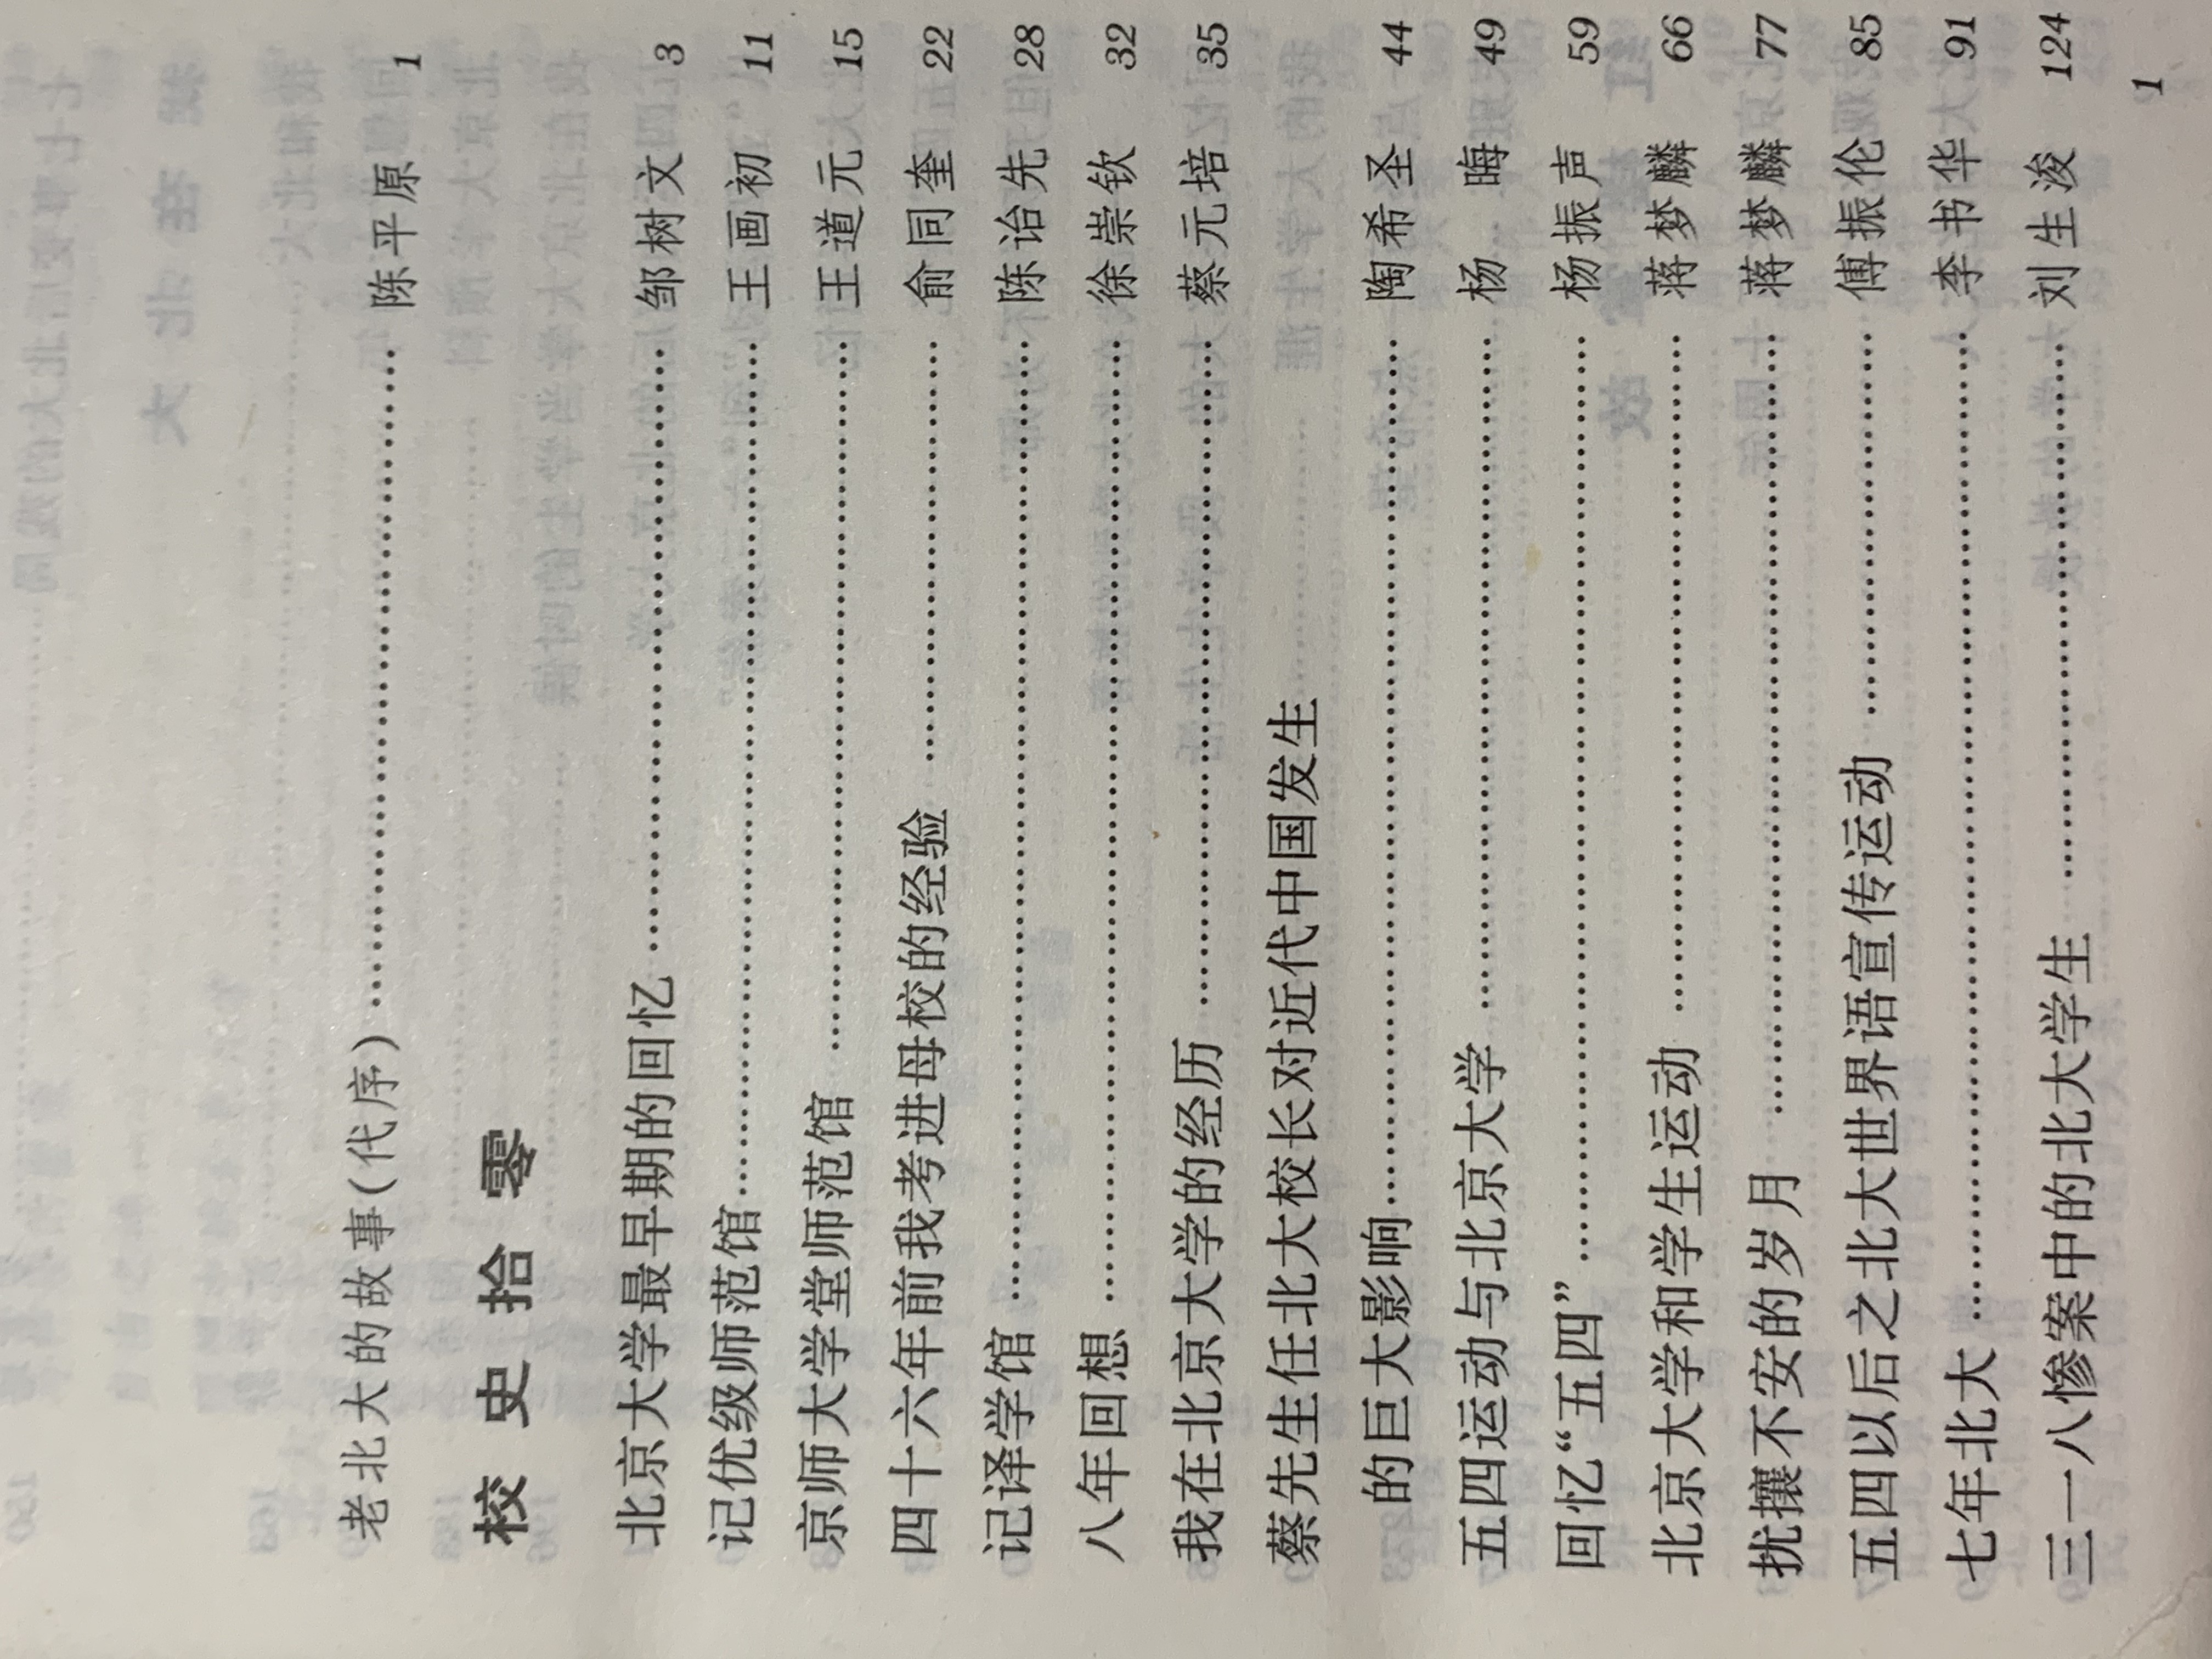 老北大的故事(代序)…………………………陈平原 1
校史拾零
北京大学最早期的回忆…………………………邹树文 3
记优级师范馆…………………………王画初 11
京师大学堂师范馆…………………………王道元 15
四十六年前我考进母校的经验…………………………俞同奎 22
记译学馆…………………………陈诒先 28
八年回想…………………………徐崇钦 32
我在北京大学的经历…………………………蔡元培 35
蔡先生任北大校长对近代中国发生
的巨大影响…………………………陶希圣 44
五四运动与北京大学…………………………杨 晦 49
回忆“五四”…………………………杨振声 59
北京大学和学生运动…………………………蒋梦麟 66
扰攘不安的岁月…………………………蒋梦麟 77
五四以后之北大世界语宣传运动…………………………傅振伦 85
七年北大…………………………李书华 91
三一八惨案中的北大学生…………………………刘生浚 124
1